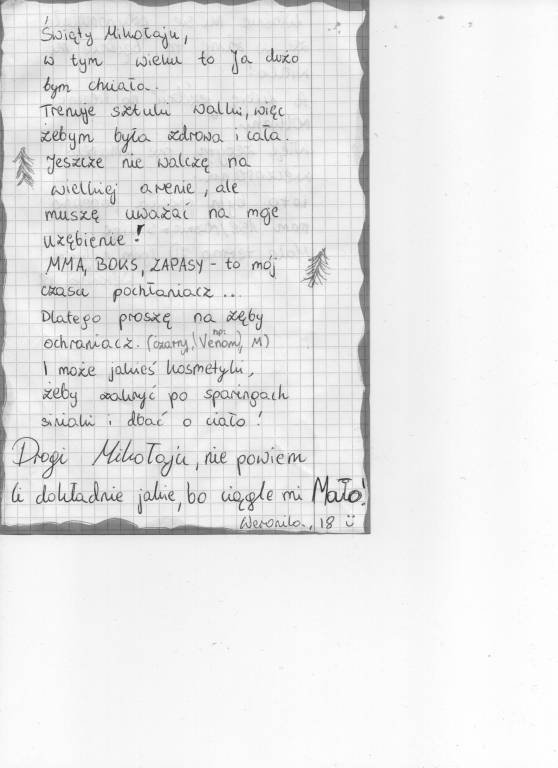 Święty Mikołaju,
w tym wieku to Ja dużo
bym chciała.
Trenuje sztuki walki, więc
żebym była zdrowa i cała.
Jeszcze nie walczę na
wielkiej arenie, ale
muszę uważać na moje
uzębienie!
MMA, BOKS, ZAPASY - to mój
czasu pochłaniacz...
Dlatego proszę na zęby
ochraniacz. (czarny, np: Venom, M)
I może jakieś kosmetyki,
żeby zakryć po sparingach
siniaki i dbać o ciało!
Drogi Mikołaju, nie powiem
Ci dokładnie jakie, bo ciągle mi Mało!
Weronika, 18